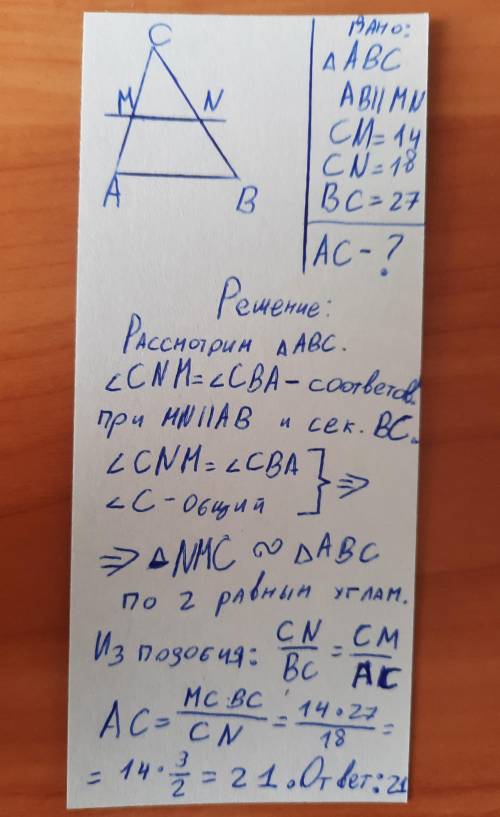 C
M N
A B
Дано:
△ABC
AB||MN
CM=14
CN=18
BC=27
AC-?
Решение:
Рассмотрим △ABC.
∠CNM=∠CBA-соответов.
при MN||AB и сек. BC.
∠CNM=∠CBA
∠C-общий } ⇒
⇒ △NMC ∾ △ABC
по 2 равным углам.
Из подобия: CN/BC = CM/AC
AC = MC·BC/CN = 14·27/18 =
= 14·3/2 = 21. Ответ: 21